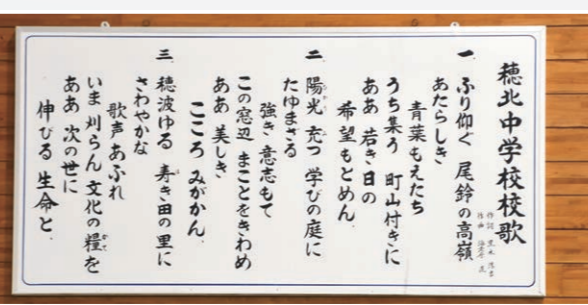 穂北中学校校歌
作詞 黒木 清
作曲 海老原 直
一 ふり仰ぐ 尾鈴の高嶺
あたらしき
青葉もえたち
うち集う 町山付きに
ああ 若き日の
希望もとめん
二 陽光 充つ 学びの庭に
たゆまざる
強き 意志もて
この窓辺 まことをきわめ
ああ 美しき
こころ みがかん
三 穂波ゆる 寿き田の里に
さわやかな
歌声あふれ
いま 刈らん 文化の糧を
ああ 次の世に
伸びる 生命と